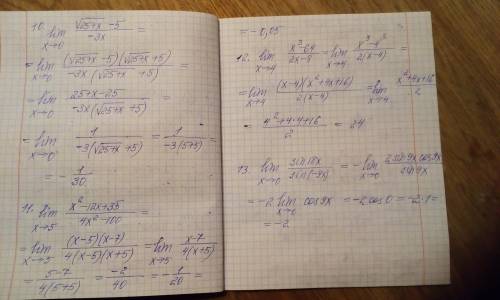 10. lim x→0 (√(25+x) - 5)/(-3x) =
= lim x→0 ((√(25+x) - 5)(√(25+x) + 5))/(-3x(√(25+x) + 5)) =
= lim x→0 (25+x-25)/(-3x(√(25+x) + 5)) =
= lim x→0 1/(-3(√(25+x) + 5)) = 1/(-3(5+5)) =
= - 1/30
11. lim x→5 (x²-12x+35)/(4x²-100) =
= lim x→5 ((x-5)(x-7))/(4(x-5)(x+5)) = lim x→5 (x-7)/(4(x+5)) =
= (5-7)/(4(5+5)) = (-2)/40 = - 1/20 =
= -0,05
12. lim x→4 (x³-64)/(2x-8) = lim x→4 (x³-4³)/(2(x-4)) =
= lim x→4 ((x-4)(x²+4x+16))/(2(x-4)) = lim x→4 (x²+4x+16)/2
= (4²+4·4+16)/2 = 24
13. lim x→0 sin18x/sin(-9x) = - lim x→0 (2 sin9x cos9x)/sin9x
= -2 lim x→0 cos9x = -2cos0 = -2·1 =
= -2